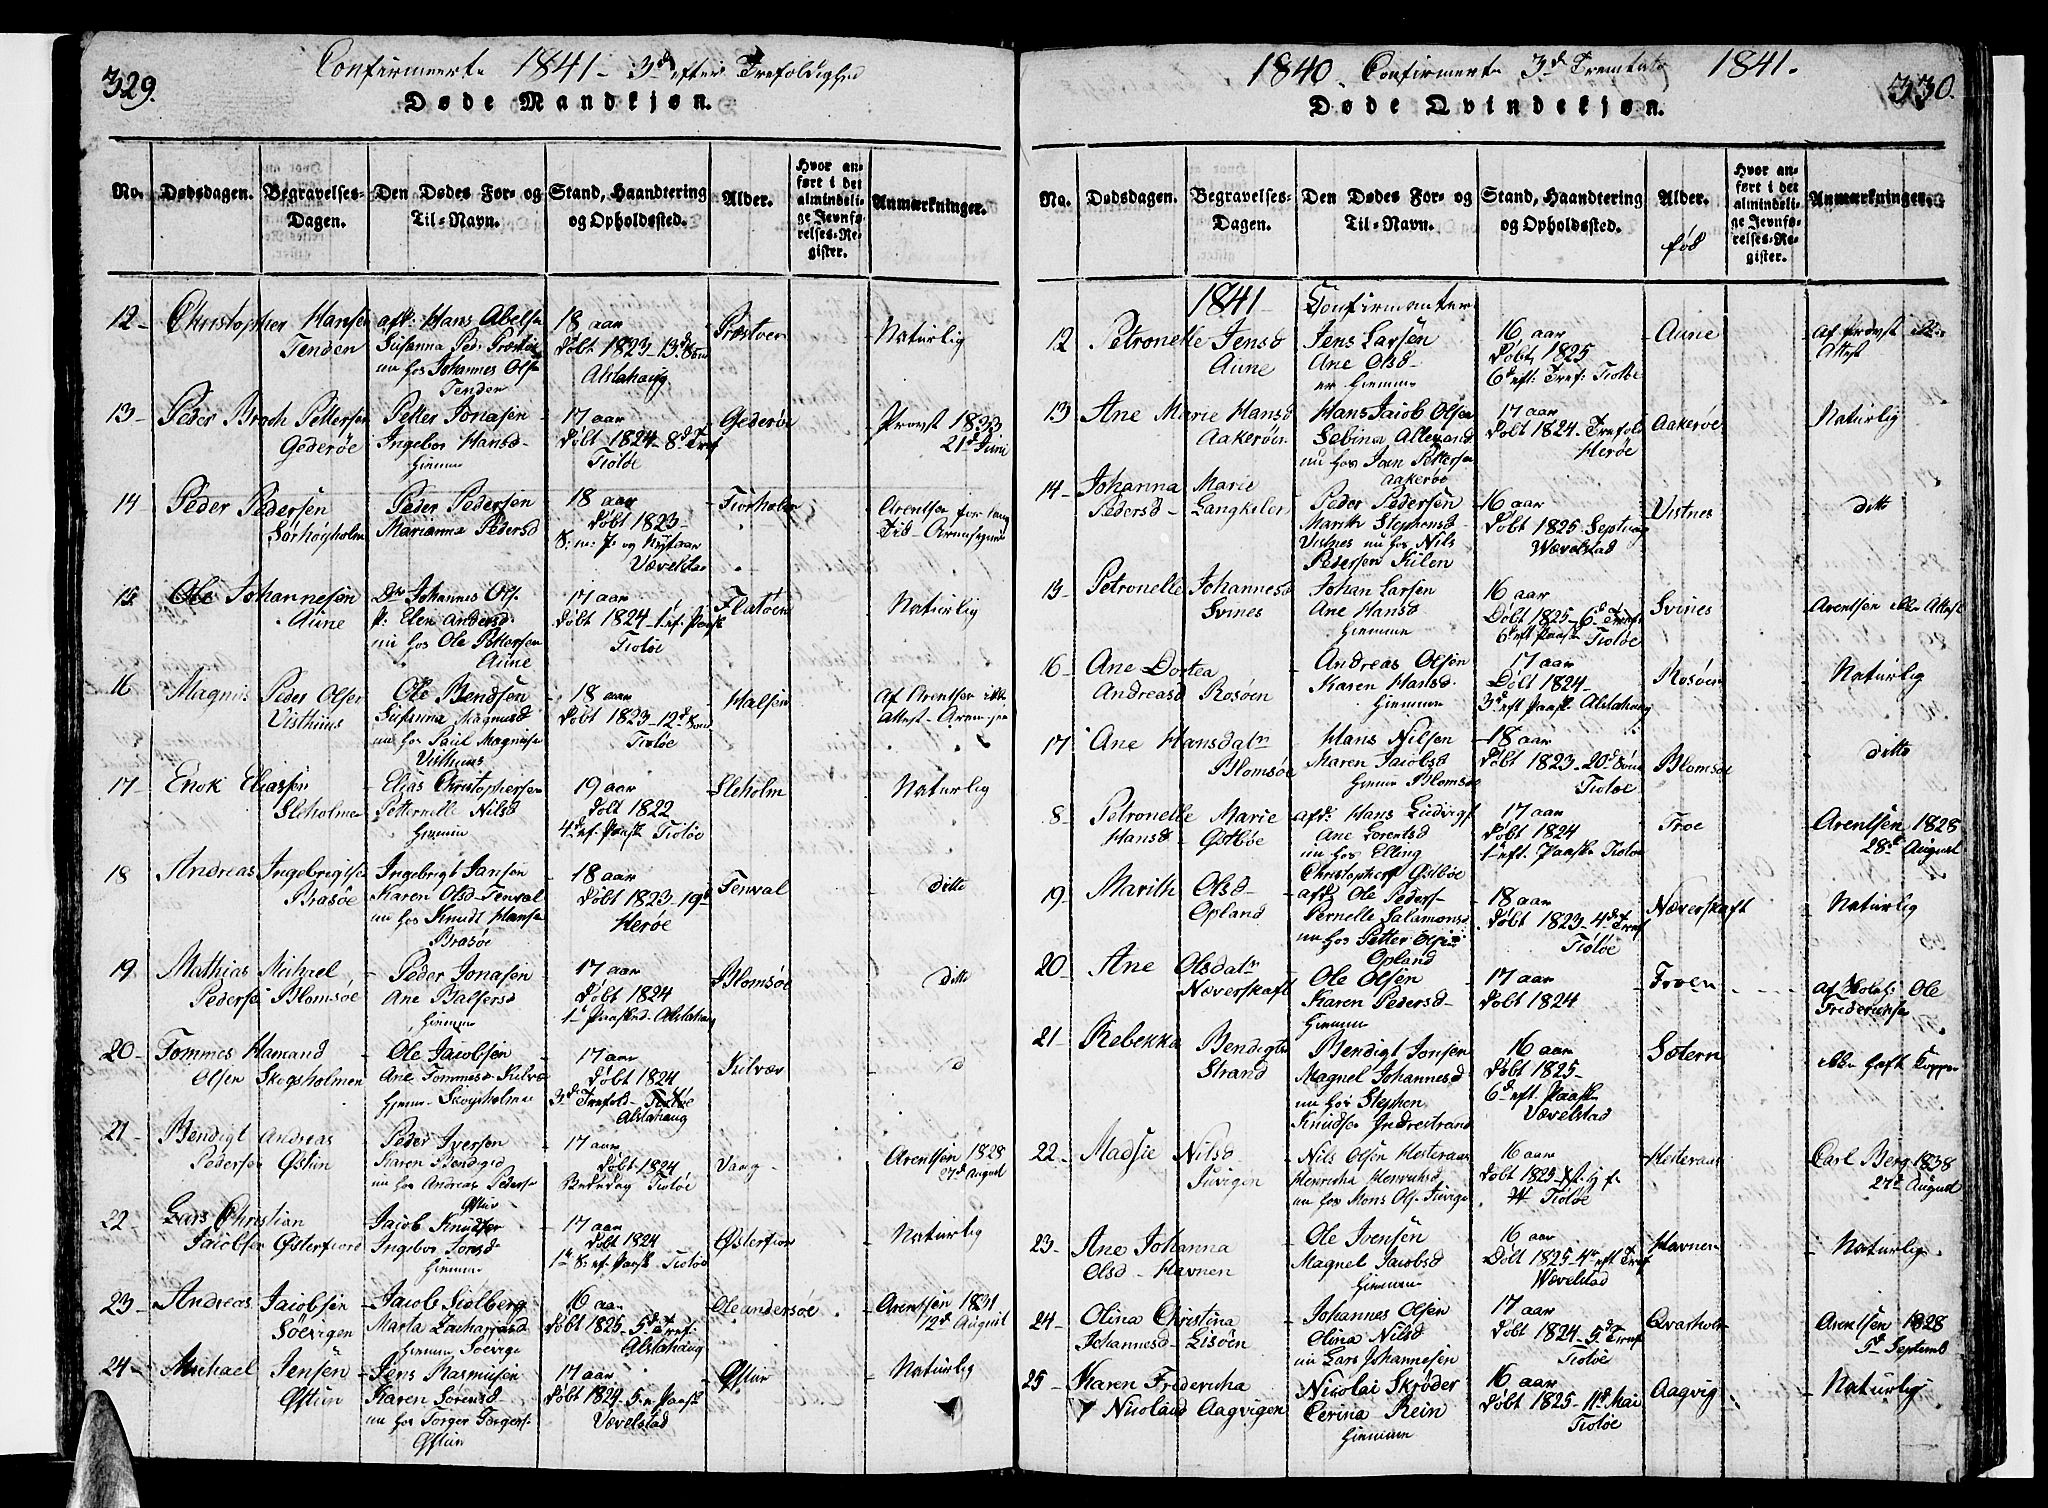 329.
Confirmerte 1841 - 3d efter Trefoldighed
Døde Mandkjøn.
No.
Dødsdagen.
Begravelses-
Dagen.
Den Dødes For- og
Til-Navn.
Stand, Haandtering
og Opholdssted.
Alder.
Hvor an-
ført i det
almindeli-
ge Jevnfø-
relses-Re-
gister.
Anmærkninger.
12 - Christopher Hansen
Tenden
afd: Hans Abels
Susanna Peds
nu hos Johannes Ols
Tenden
18 aar
Døbt 1823 - 13d Sønd
Alstahaug
Præstver
Naturlig
13 - Peder Broch Pettersen
Gederøe
Petter Jonasen
Ingebor Hansd
hiemme
17 aar
Døbt 1824 - 8d Tref
Tiøtøe
Gederøe
Provst 1833
21d Juni
14 - Peder Pedersen
Sørhøysholm
Peder Pedersen
Marianna Pedersd
18 aar
Døbt 1823 -
S: m: J: og Nytaar
Vævelstad
Tiorholm
Arentsen for lang
Tid -
15 Ole Johannesen
Aune
Johannes Ols
P: Elen Andersd
nu hos Ole Pettersen
Aune
17 aar
Døbt 1824 - 1 ef: Paask
Tiøtøe
Flatøen
Naturlig
16 Magnus Peder Olsen
Visthuus
Ole Bendsen
Susanna Magnusd
nu hos Paul Magnuse
Visthuus
18 aar
Døbt 1823 - 12d Sønd
Tiøtøe
Halsen
Af Arentsen ikke
Attest -
17 - Enok Eliassen
Sleholmen
Elias Christophersen
Petternelle Nilsd
hiemme
19 aar
Døbt 1822
4d ef: Paask Tiøtøe
Sleholm
Naturlig
18 Andreas Ingebrigtse
Brasøe
Ingebrigt Jansen
Karen Olsd - Tenval
nu hos Knudt Hanse
Brasøe
18 aar
Døbt 1823 - 19d
Herøe
Tenval
ditto
19 Mathias Michael
Pederse Blomsøe
Peder Jonasen
Ane Balsersd
hiemme
17 aar
Døbt 1824
1d Paasked - Alstahaug
Blomsøe
ditto
20 - Tommes Hamand
Olsen Skogsholmen
Ole Jacobsen
Ane Tommesd Kilvæ
hiemme - Skogsholmen
17 aar
Døbt 1824
3d Trefold - Tiøtøe
Alstahaug
Kilvær
d
21 - Bendigt Andreas
Pedersen Østun
Peder Iversen
Karen Bendigtd
nu hos Andreas Pederse
Østun
17 aar
Døbt 1824
Bededag Tiøtøe
Vang
Arentsen 1828
27d August
22 - Lars Christian
Jacobsen Østerfiord
Jacob Knudsen
Ingebor Jonsd
hiemme
17 aar
Døbt 1824
1d S: ef: Paask Tiøtøe
Østerfior
Naturlig
23 - Andreas Jacobsen
Søevigen
Jacob Siølberg
Marta Zachariasd
hiemme, Søevige
16 aar
Døbt 1825 - 5d Tref:
Alstahaug
Oleandersøe
Arentsen 1831
12d August
24 - Michael Jensen
Østun
Jens Rasmusen
Karen Sørensd
nu hos Torger Torgers
Østun
17 aar
Døbt 1824 - 5 Paask
Vævelstad
Østun
Naturlig
1840 Confirmerte 3d 1841.
330.
Døde Qvindekjøn.
No.
Dødsdagen.
Begravelses-
Dagen.
Den Dødes For- og
Til-Navn.
Stand, Haandtering
og Opholdssted.
Alder.
fød
Hvor an-
ført i det
almindeli-
ge Jevnfø-
relses-Re-
gister.
Anmærkninger.
1841 Confirmanter
12 Petronelle Jensd
Aune
Jens Larsen
Ane Olsd
er hiemme
16 aar
Døbt 1825
6d eft: Tref: Tiøtøe
Aune
af Provst
Attest
13 Ane Marie Hansd
Aakerøen
Hans Jacob Olsen
Sebina Allexand
nu hos Joen Pettersen
Aakerøe
17 aar
Døbt 1824 - Trefold
Herøe
Aakerøe
Naturlig
14 - Johanna Marie
Pedersd - Langkilen
Peder Pedersen
Marith Stephensd
Vistnes nu hos Nils
Pedersen Kilen
16 aar
Døbt 1825 Septuag
Wævelstad
Vistnes
ditto
15 - Petronelle Johannesd
Svines
Johan Larsen
Ane Hansd
hiemme
16 aar
Døbt 1825 - 6d Tref
6d eft Paask Tiøtøe
Svines
Arentsen ikke Attest
16 - Ane Dortea
Andreasd Rosøen
Andreas Olsen
Karen Hansd
hiemme
17 aar
Døbt 1824 -
3d eft Paask Alstahaug
Rosøen
Naturlig
17 Ane Hansdatr
Blomsøe
Hans Nilsen
Maren Jacobsd
hiemme Blomsøe
18 aar
Døbt 1823 - 20d Sønd
Tiøtøe
Blomsøe
ditto
8 - Petronelle Marie
Hansd Østbøe
afd: Hans Ludvigs
Ane Lorentsd
nu hos Elling
Christophers Østbøe
17 aar
Døbt 1824
1d eft. Paask Tiøtøe
Troe
Arentsen 1828
28d August
19 - Marith Olsd
Opland
afd: Ole Peders
Pernelle Salamonsd
nu hos Petter Olse
Opland
18 aar
Døbt 1823 - 4d Tref
Tiøtøe
Næverskaft
Naturlig
20 - Ane Olsdatr
Næverskaft
Ole Olsen
Karen Pedersd
hiemme
17 aar
Døbt 1824
Troen
af Ole
Frederikse
21 - Rebekka Bendigts
Strand
Bendigt Jonsen
Magnel Johannesd
nu hos Stephen
Knudse Indrestrand
16 aar
Døbt 1825 -
6d eft Paask
Vævelstad
Sætern
ikke haft Kopper
22 - Madsie Nilsd
Tuvigen
Nils Olsen Hesteraas
Henricha Henrichsd
nu hos Mons Ols Tuvige
16 aar
Døbt 1825
Tiøtøe
Hesteraas
Carl Berg 1838
27d August
23 - Ane Johanna
Olsd - Havnen
Ole Ivensen
Magnel Jacobsd
hiemme
16 aar
Døbt 1825 - 4de eft Tref
Wævelstad
Havnen
Naturlig
24 - Olina Christina
Johannesd - Lisøen
Johannes Olsen
Olina Nilsd
nu Lars Johannesen
17 aar
Døbt 1824 - 5d Tref
Tiøtøe
Qvasholm
Arentsen 1828
5d Septemb
25 - Karen Fredericha
Nicolaid Aagvigen
Nicolai Skrøder
Cerina Rein
hiemme
16 aar
Døbt 1825 - 11d Mai
Tiøtøe
Aagvig
Naturlig